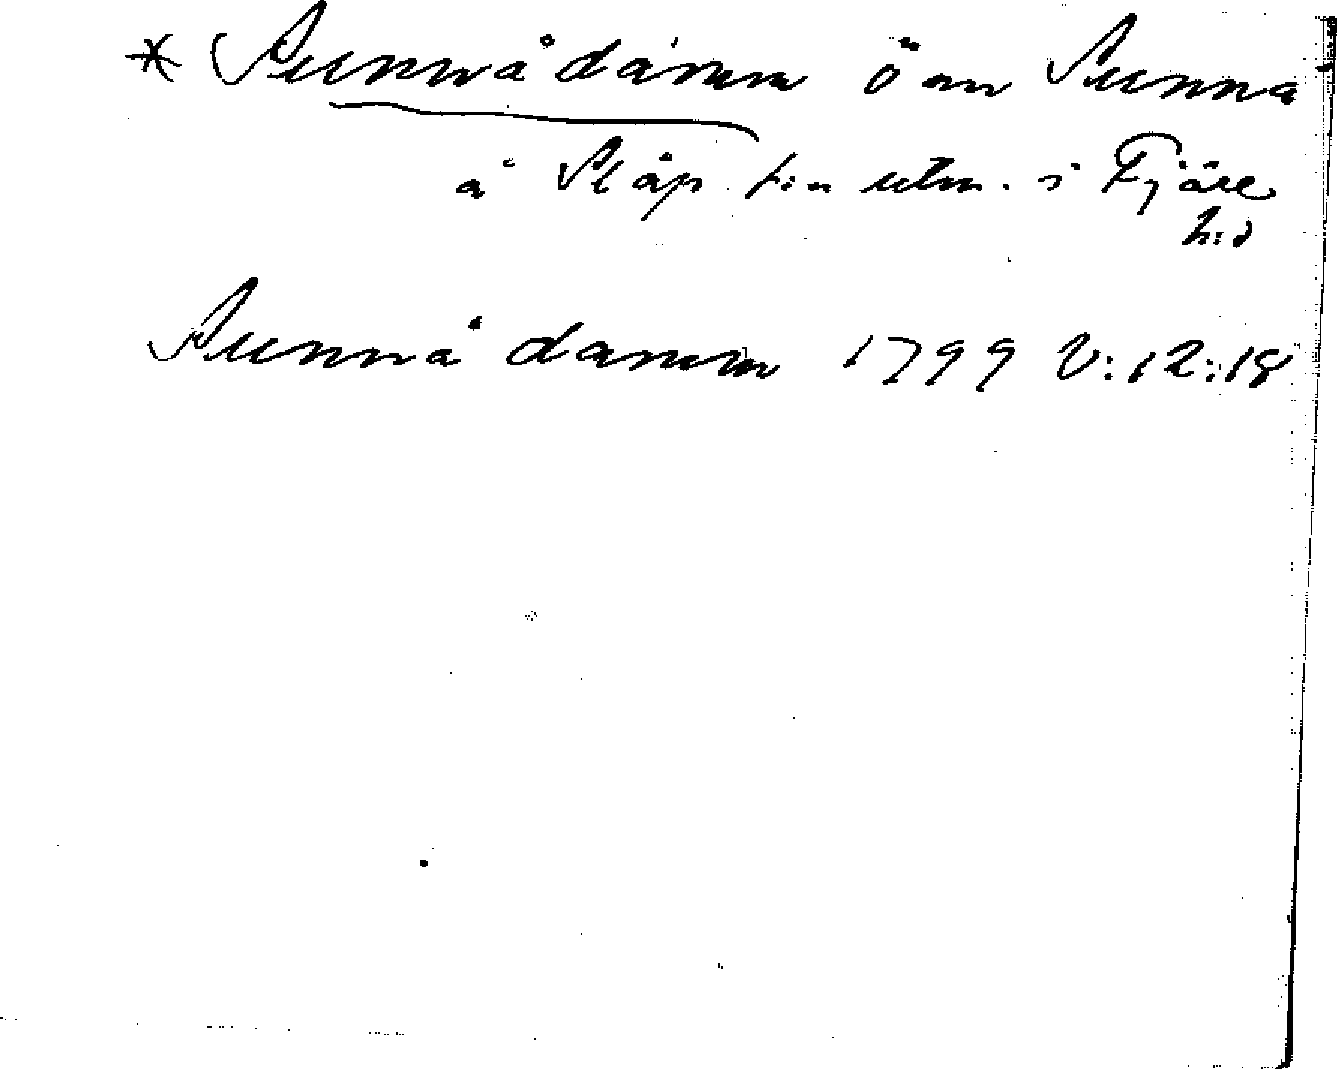 * Sunnådamm ö om Sunna
å Släp s:n utm. i Fjäre
h:d
Sunnå damm 1799 V:12:18